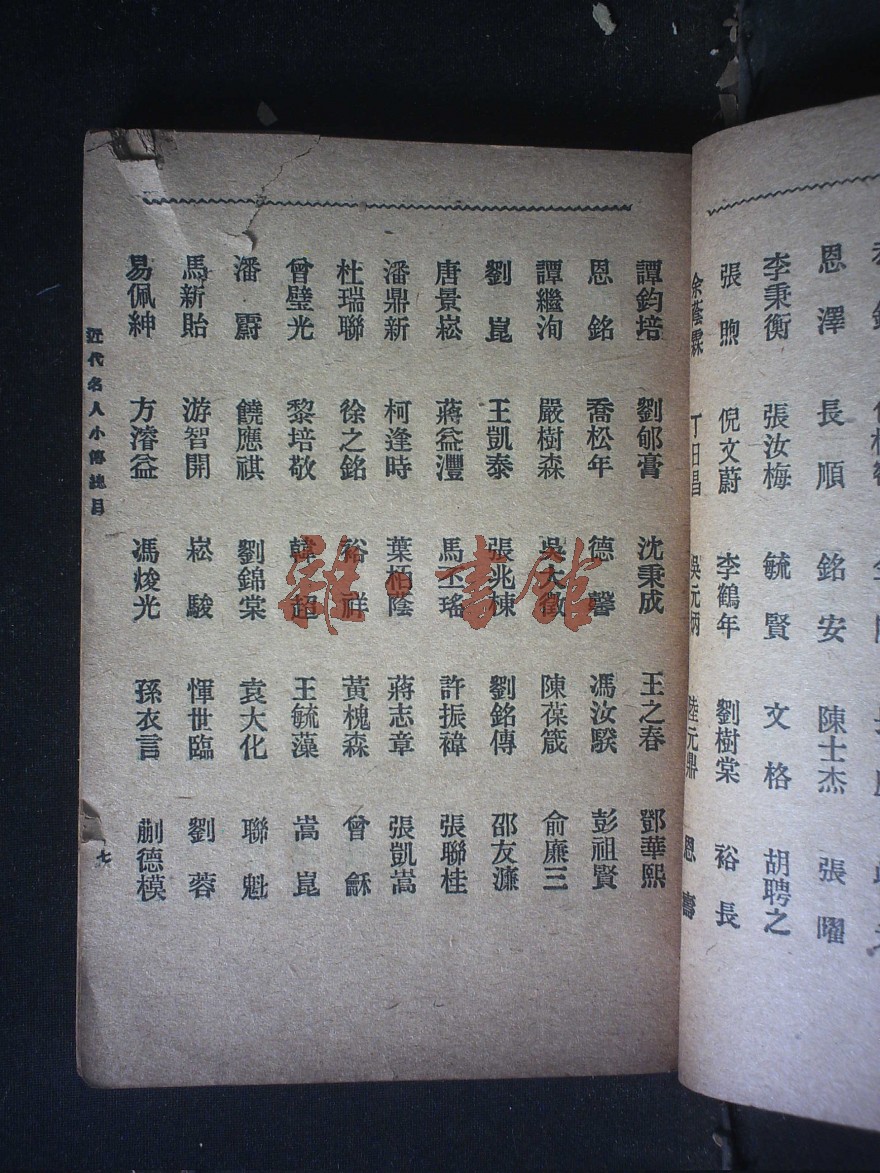 恩澤 長順 銘安 陳士杰 張曜
李秉衡 張汝梅 毓賢 文格 胡聘之
張煦 倪文蔚 李鶴年 劉樹棠 裕長
余蔭霖 丁日昌 吳元炳 陸元鼎 恩壽
譚鈞培 劉郇膏 沈秉成 王之春 鄧華熙
恩銘 喬松年 德馨 馮汝騤 彭祖賢
譚繼洵 嚴樹森 吳大徵 陳葆箴 俞廉三
劉崑 王凱泰 張兆棟 劉銘傳 邵友濂
唐景崧 蔣益灃 馬丕瑤 許振褘 張聯桂
潘鼎新 柯逢時 葉栢蔭 蔣志章 張凱嵩
杜瑞聯 徐之銘 裕祥 黃槐森 曾龢
曾璧光 黎培敬 韓超 王毓藻 嵩崑
潘霨 饒應祺 劉錦棠 袁大化 聯魁
馬新貽 游智開 崧駿 惲世臨 劉蓉
易佩紳 方濬益 馮焌光 孫衣言 蒯德模
近代名人小傳總目
七
雜·書館